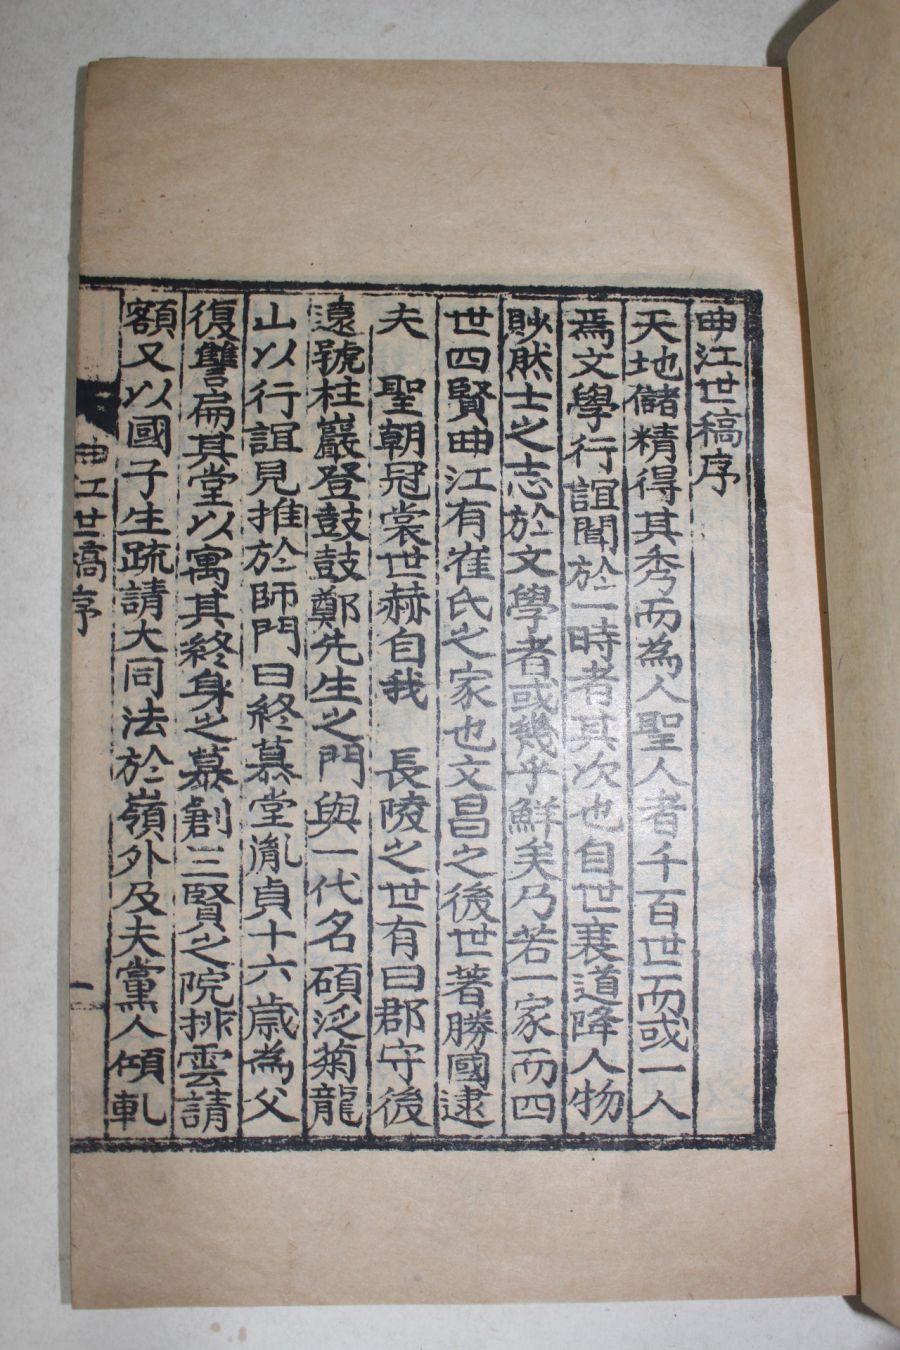 曲江世稿序
天地儲精得其秀而為人聖人者千百世而或一人
焉文學行誼聞於一時者其次也自世衰道降人物
眇然士之志於文學者或幾乎鮮矣乃若一家而四
世四賢曲江有崔氏之家也文昌之後世著勝國逮
夫 聖朝冠裳世赫自我 長陵之世有曰郡守後
遠號柱巖登鼓鼓鄭先生之門與一代名碩泛菊龍
山以行誼見推於師門曰終慕堂胤貞十六歲為父
復讐扁其堂以寓其終身之慕創三賢之院排雲請
額又以國子生疏請大同法於嶺外及夫黨人傾軋
曲江世稿序
一